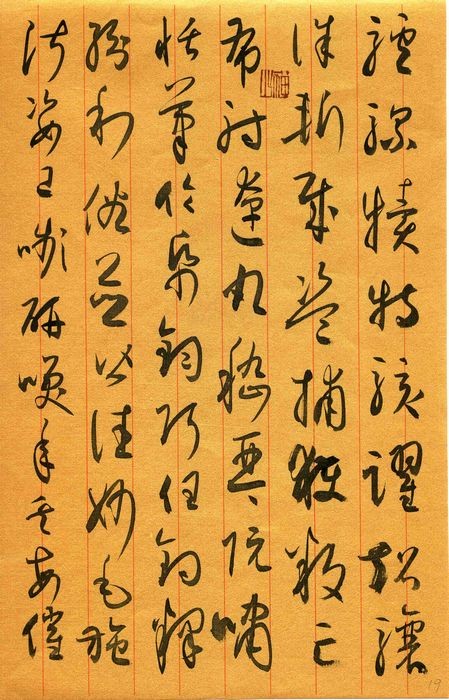 驢騾犢特駭躍超驤
誅斬賊盜捕獲叛亡
布射遼丸嵇琴阮嘯
恬筆倫紙鈞巧任釣釋
紛利俗並皆佳妙毛施
淑姿工嚬研咲年矢每催
19